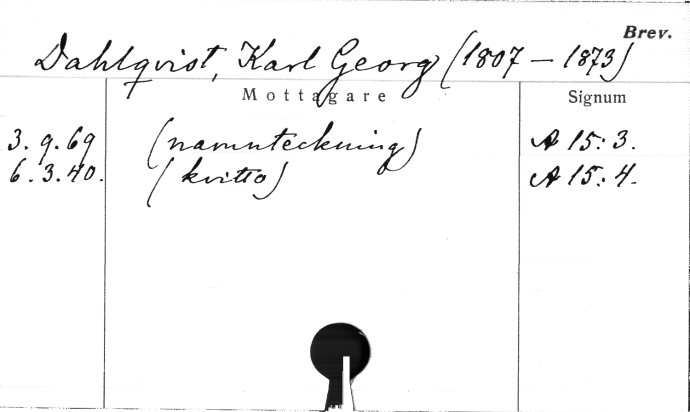 Brev.
Dahlqvist, Karl Georg (1807 – 1873)
Mottagare Signum
3. 9. 69 (namnteckning) A 15: 3.
6. 3. 40. (kvitto) A 15: 4.